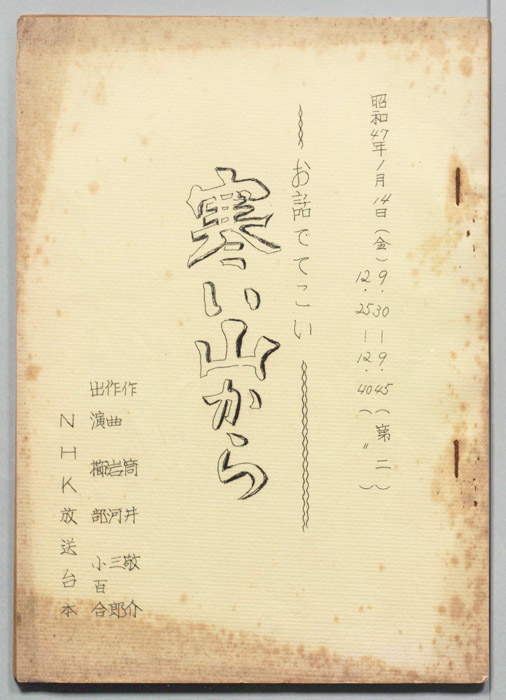 昭和47年1月14日(金)9.30—9.45(第二)
12.25—12.40(〃)
お話でてこい
寒い山から
作 筒井敬介
作曲 岩河三郎
出演 櫛部小百合
NHK放送台本